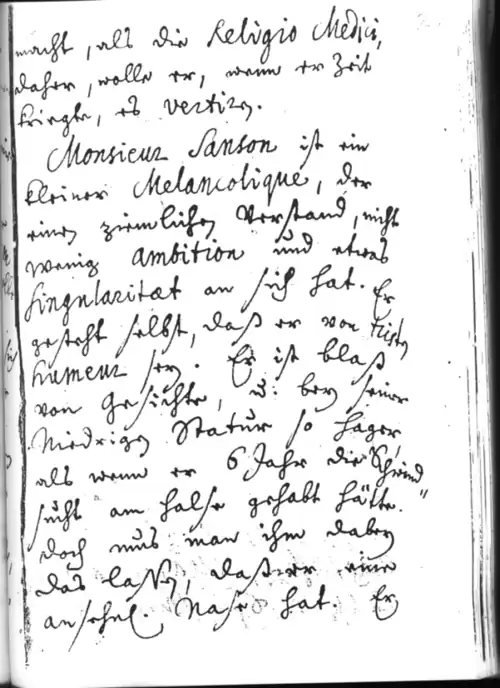 macht, als die Religio Medici,
daher, wolle er, wenn er Zeit
kriegte, es vertiren.
Monsieur Sanson ist ein
kleiner Melancolique, der
einen ziemlichen Verstand, nicht
wenig ambition und etwas
Singularitaet an sich hat. Er
gesteht selbst, daß er von tristen
humeur sey. Er ist blaß
von Gesichte, u: bey seiner
Niedrigen Statur so hager,
als wenn er 6 Jahr die Schwind„
sucht am Halse gehabt hätte.
doch mus man ihm dabey
das lassen, daß er eine
ansehnl. Nase hat. Er